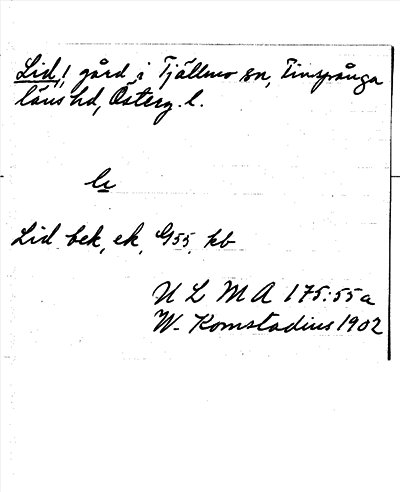 Lid, ! gård i Tjällmo sn, Finspånga
läns hd, Österg. l.
li
Lid bek, ek, G 55, kb
U L M A 175:55a
W. Komstadius 1902